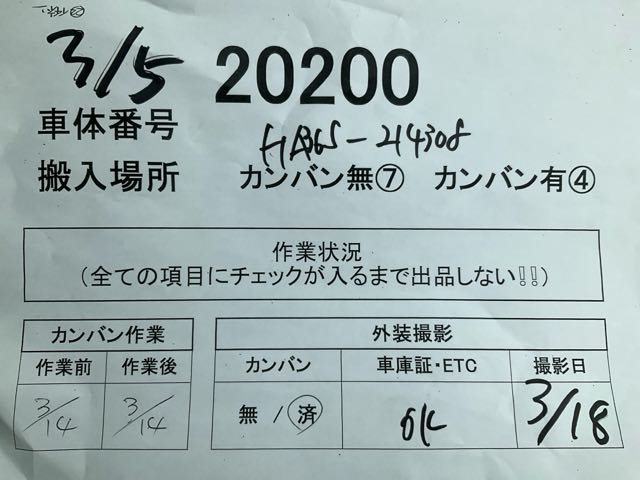 3/5 20200
車体番号 HA36S-214308
搬入場所 カンバン無⑦ カンバン有④
作業状況
(全ての項目にチェックが入るまで出品しない!!)
カンバン作業 外装撮影
作業前 作業後 カンバン 車庫証・ETC 撮影日
3/14 3/14 無 / 済 OK 3/18